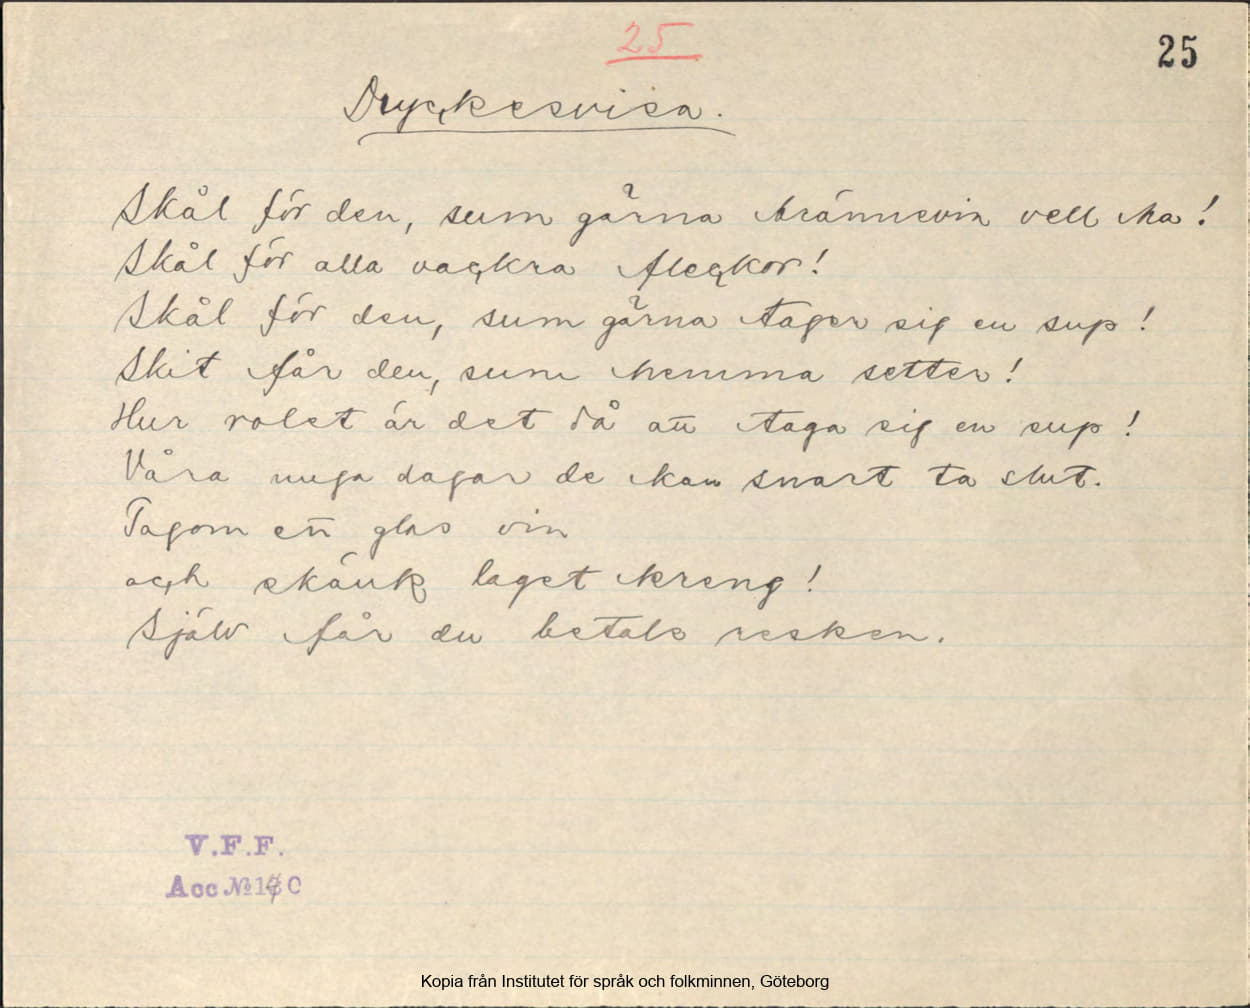 25
25
Dryckesvisa.
Skål för den, sum gärna brännevin vell ha!
Skål för alla vackra fleckor!
Skål för den, sum gärna tager sig en sup!
Skit får den, sum hemma setter!
Hur rolet är det då att taga sig en sup!
Våra unga dagar de kan snart ta slut.
Tagom ett glas vin
och skänk laget kreng!
Själv får du betala resken.
V.F.F.
Acc №
Kopia från Institutet för språk och folkminnen, Göteborg